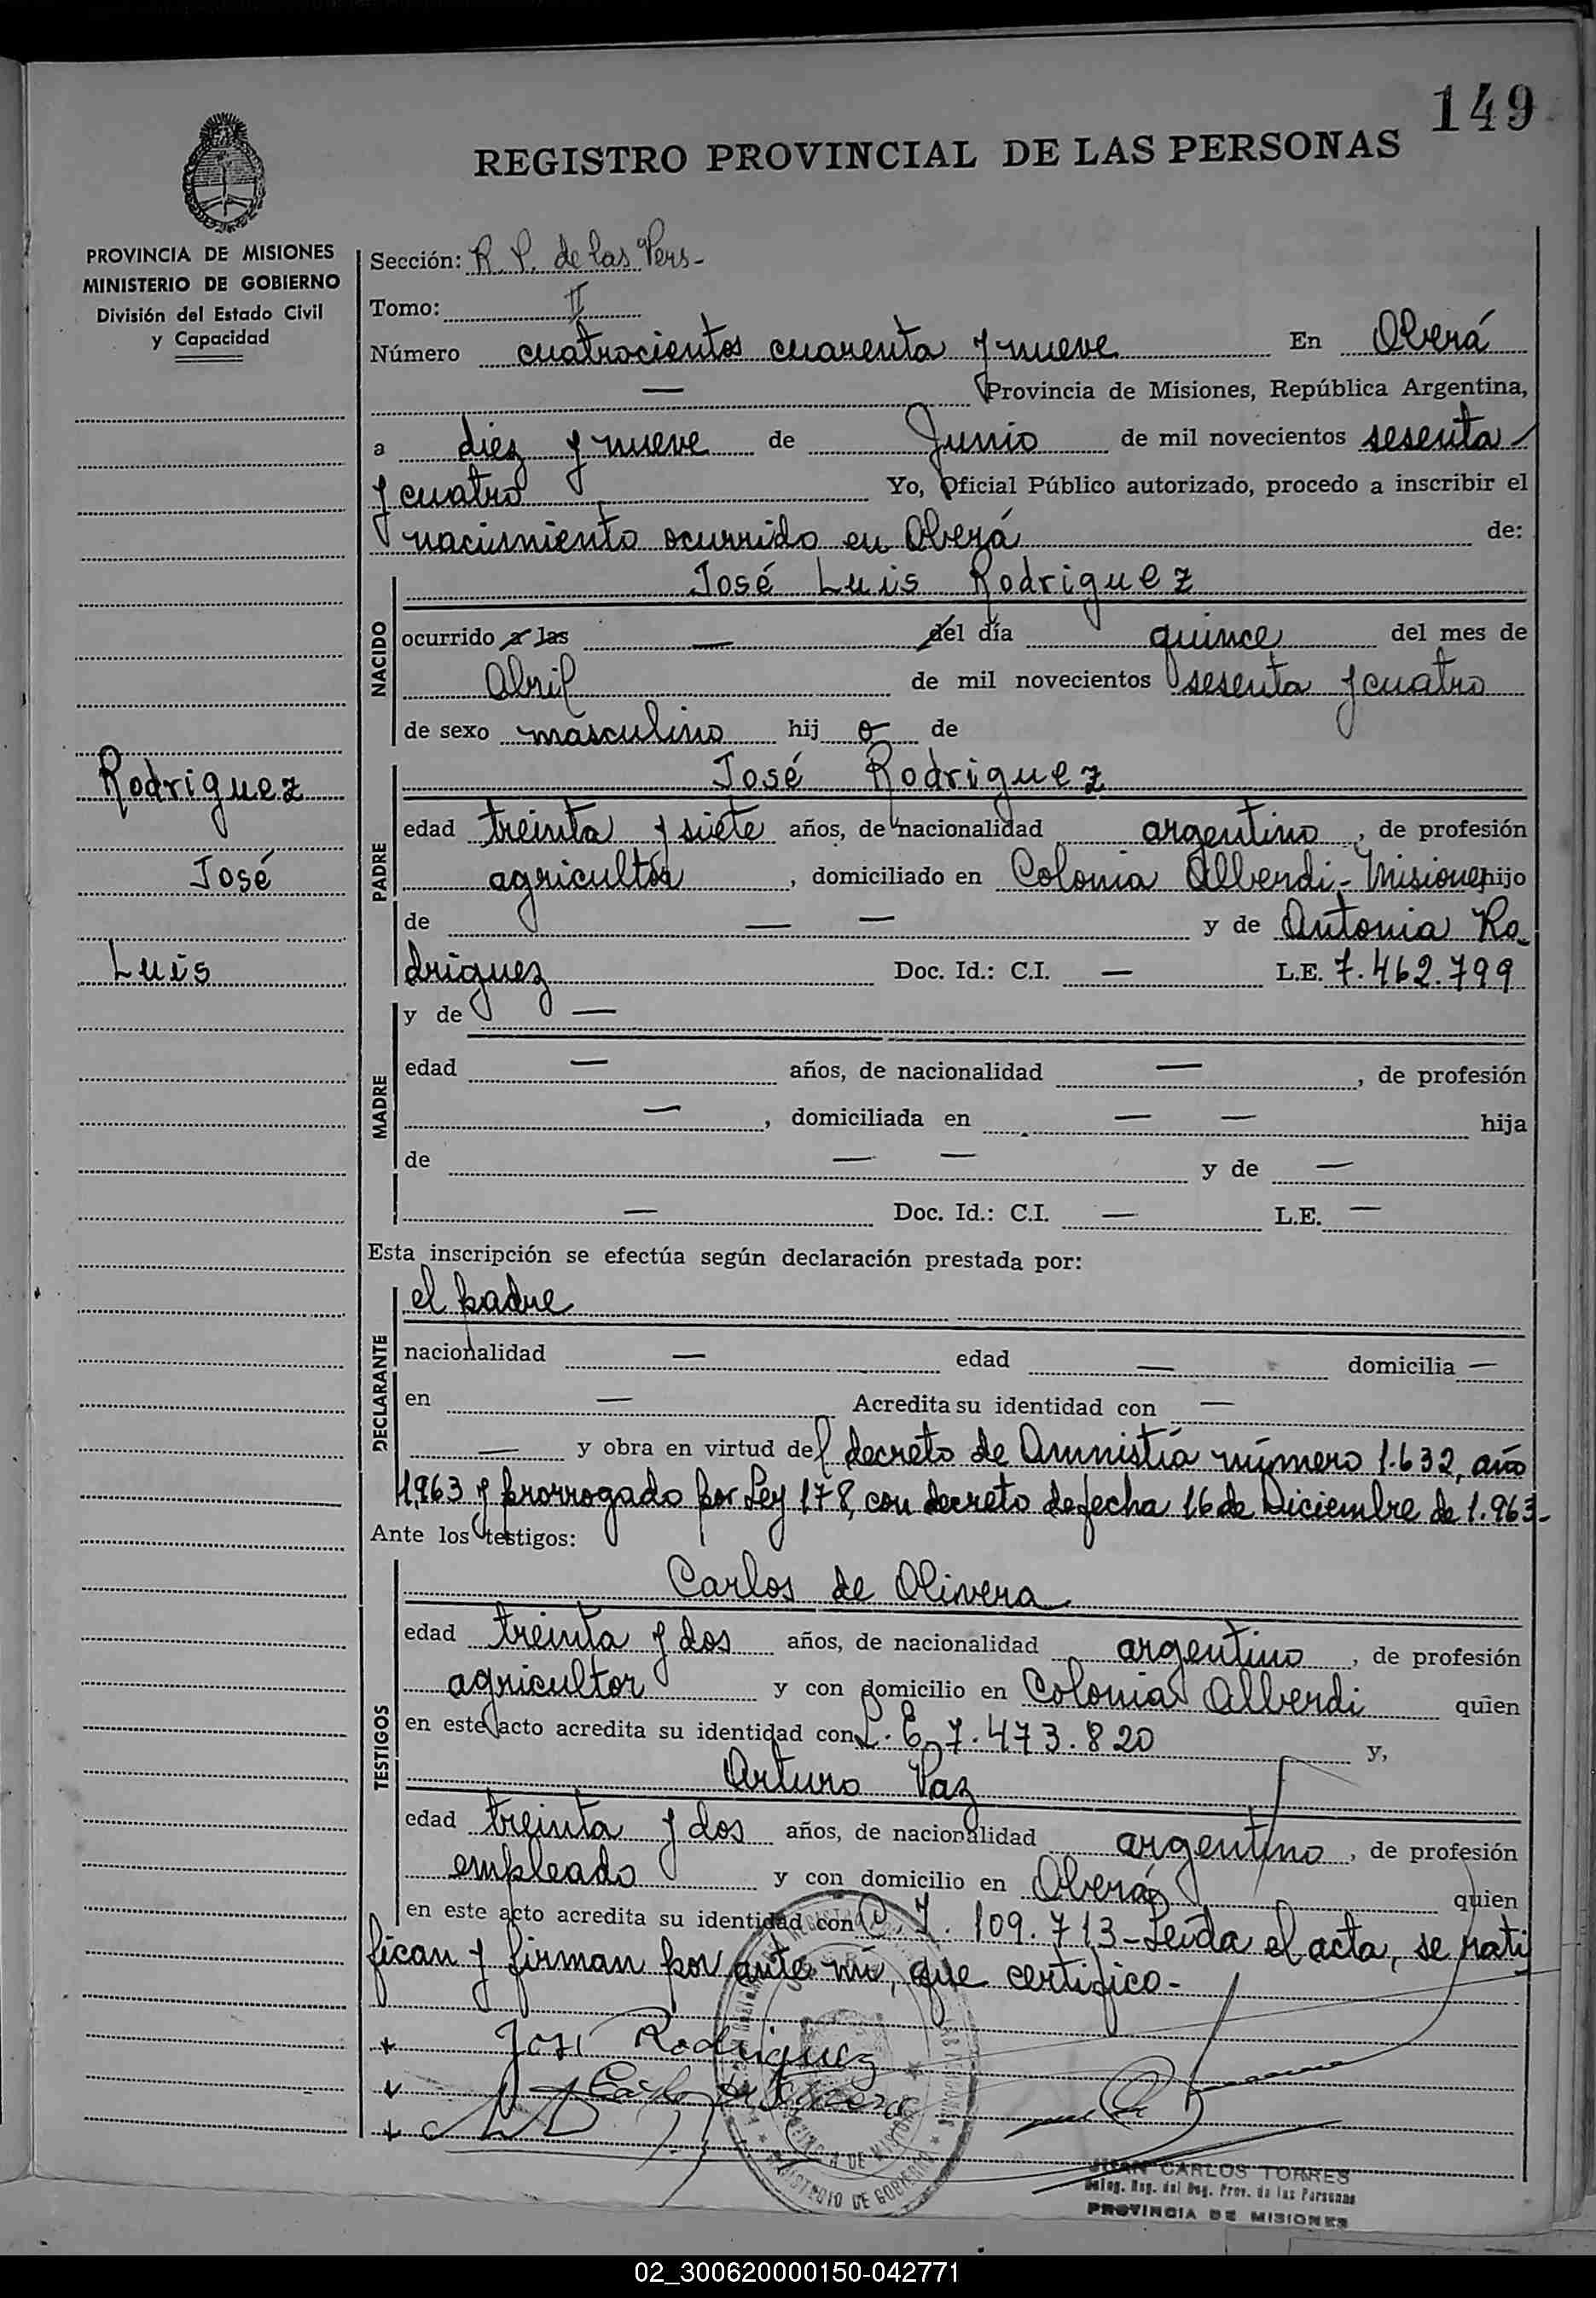 149
REGISTRO PROVINCIAL DE LAS PERSONAS
PROVINCIA DE MISIONES
MINISTERIO DE GOBIERNO
División del Estado Civil
y Capacidad
Rodriguez
José
Luis
Sección: R. P. de las Pers-
Tomo: II
Número cuatrocientos cuarenta y nueve En Oberá
— Provincia de Misiones, República Argentina,
a diez y nueve de Junio de mil novecientos sesenta
y cuatro Yo, Oficial Público autorizado, procedo a inscribir el
nacimiento ocurrido en Oberá de:
NACIDO
José Luis Rodriguez
ocurrido a las — del día quince del mes de
Abril de mil novecientos sesenta y cuatro
de sexo masculino hij o de
PADRE
José Rodriguez
edad treinta y siete años, de nacionalidad argentino, de profesión
agricultor, domiciliado en Colonia Alberdi-Misiones hijo
de — — y de Antonia Ro
driguez Doc. Id.: C.I. — L.E. 7.462.799
MADRE
y de —
edad — años, de nacionalidad —, de profesión
—, domiciliada en — — hija
de — — y de —
— Doc. Id.: C.I. — L.E. —
Esta inscripción se efectúa según declaración prestada por:
DECLARANTE
el padre
nacionalidad — edad — domicilia —
en — Acredita su identidad con —
— y obra en virtud del decreto de Amnistía número 1.632, año
1963 y prorrogado por Ley 178, con decreto de fecha 16 de Diciembre de 1.963-
Ante los testigos:
TESTIGOS
Carlos de Olivera
edad treinta y dos años, de nacionalidad argentino, de profesión
agricultor y con domicilio en Colonia Alberdi quien
en este acto acredita su identidad con L.E. 7.473.820 y,
Arturo Paz
edad treinta y dos años, de nacionalidad argentino, de profesión
empleado y con domicilio en Oberá quien
en este acto acredita su identidad con C.I. 109.713-Leída el acta, se rati
fican y firman por ante mí, que certifico-
José Rodriguez
JUAN CARLOS TORRES
Deleg. Reg. del Reg. Prov. de las Personas
PROVINCIA DE MISIONES
MINISTERIO DE GOBIERNO
02_300620000150-042771